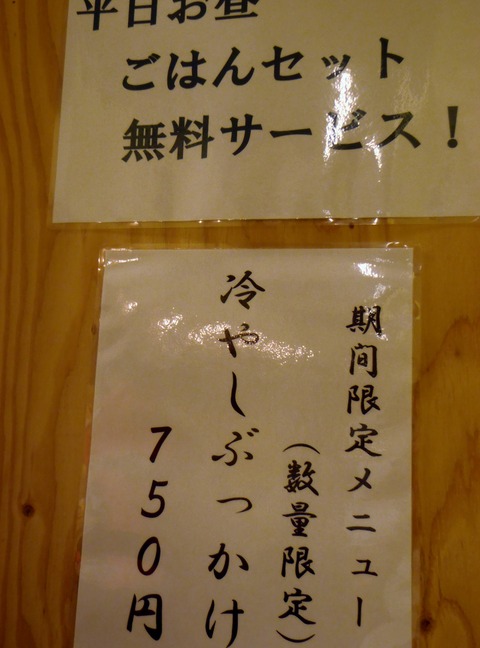 平日お昼
ごはんセット
無料サービス！
期間限定メニュー
（数量限定）
冷やしぶっかけ
750円